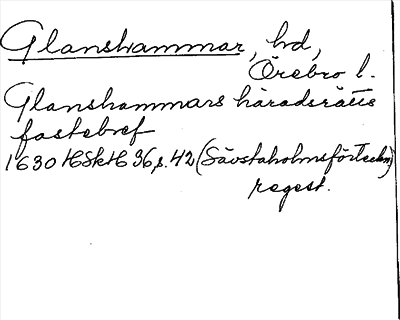 Glanshammar, hd,
Örebro l.
Glanshammars häradsrätts
fastebref
1630 HSkH 36, s. 42 (Sävstaholmsförteckn)
regest.